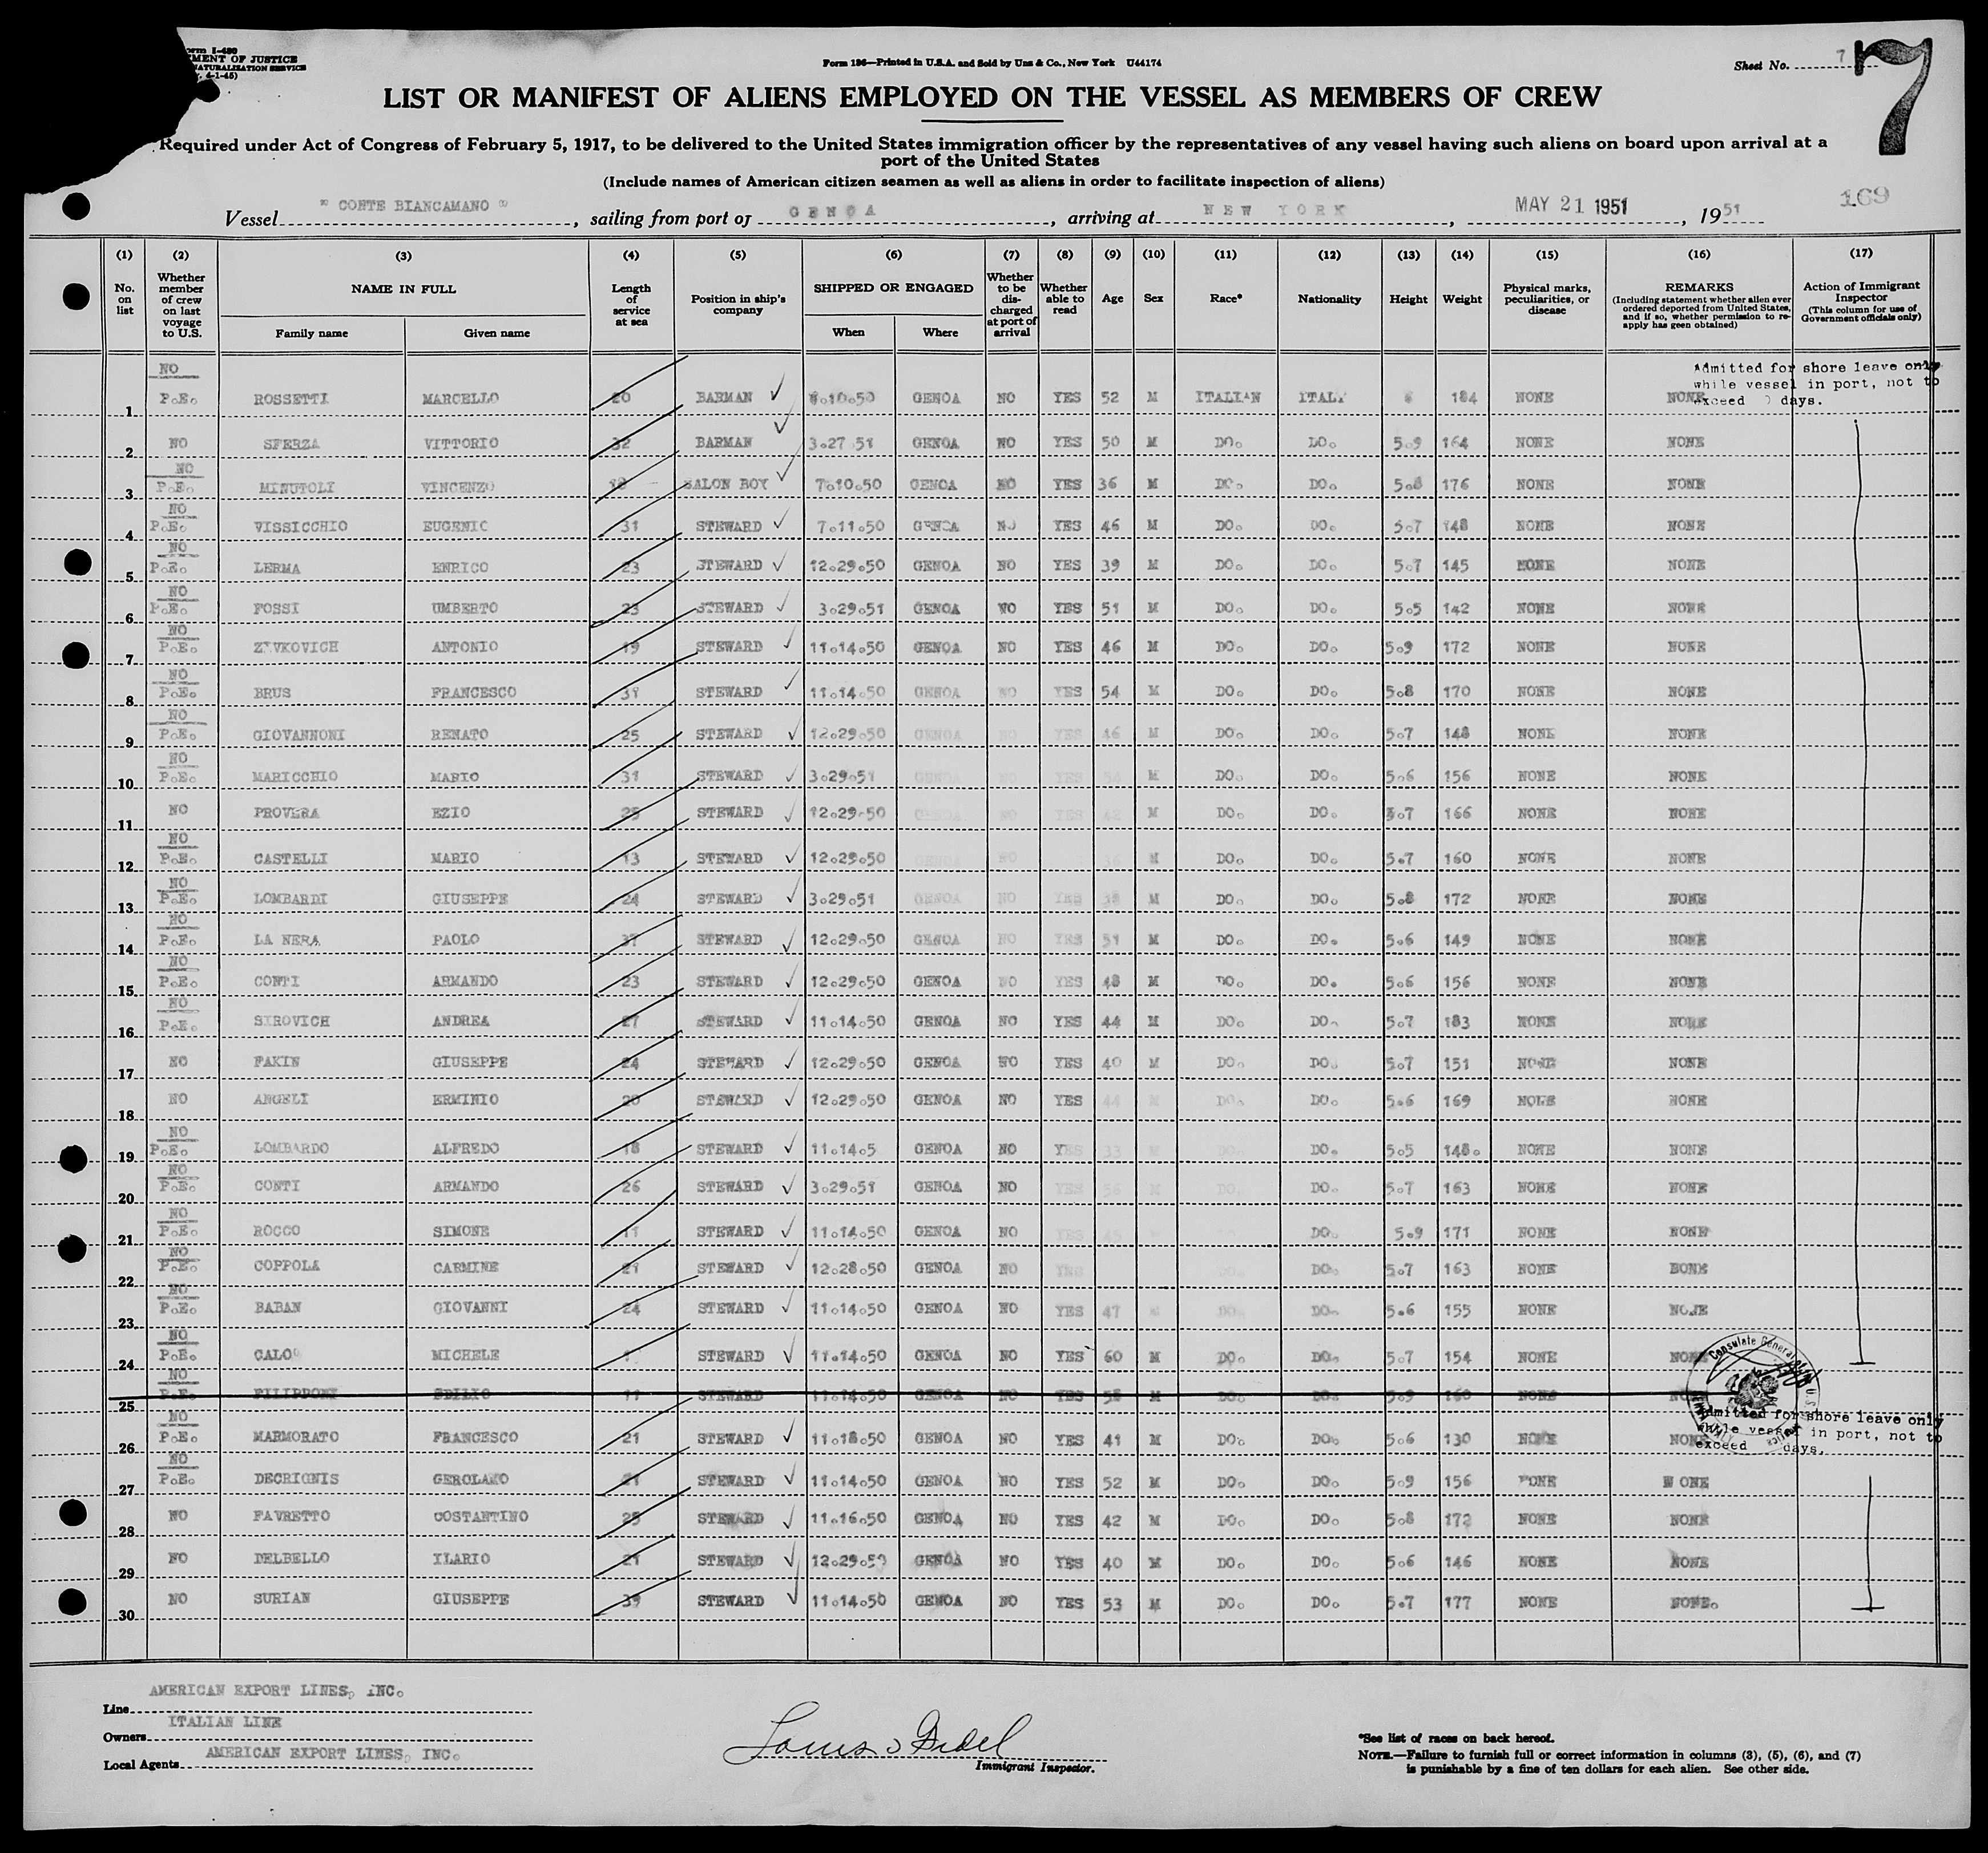 Form I-480
MENT OF JUSTICE
NATURALIZATION SERVICE
4-1-45)
Form 186—Printed in U.S.A. and Sold by Unz & Co., New York U44174
Sheet No. 7
7
LIST OR MANIFEST OF ALIENS EMPLOYED ON THE VESSEL AS MEMBERS OF CREW
Required under Act of Congress of February 5, 1917, to be delivered to the United States immigration officer by the representatives of any vessel having such aliens on board upon arrival at a
port of the United States
(Include names of American citizen seamen as well as aliens in order to facilitate inspection of aliens)
169
Vessel " CONTE BIANCAMANO ", sailing from port of GENOA, arriving at NEW YORK, MAY 21 1951, 1951
(1) (2) (3) (4) (5) (6) (7) (8) (9) (10) (11) (12) (13) (14) (15) (16) (17)
No. on list
Whether member of crew on last voyage to U.S.
NAME IN FULL
Family name Given name
Length of service at sea
Position in ship's company
SHIPPED OR ENGAGED
When Where
Whether to be discharged at port of arrival
Whether able to read
Age
Sex
Race*
Nationality
Height
Weight
Physical marks, peculiarities, or disease
REMARKS
(Including statement whether alien ever ordered deported from United States, and if so, whether permission to re-apply has geen obtained)
Action of Immigrant Inspector
(This column for use of Government officials only)
Admitted for shore leave only
while vessel in port, not to
exceed days.
1 NO P.E. ROSSETTI MARCELLO 20 BARMAN 10.50 GENOA NO YES 52 M ITALIAN ITALY 184 NONE NONE
2 NO SFERZA VITTORIO 32 BARMAN 3.27 51 GENOA NO YES 50 M DO. DO. 5.9 164 NONE NONE
3 NO P.E. MINUTOLI VINCENZO SALON BOY 7.10.50 GENOA NO YES 36 M DO. DO. 5.8 176 NONE NONE
4 NO P.E. VISSICCHIO EUGENIO 31 STEWARD 7.11.50 GENOA NO YES 46 M DO. DO. 5.7 148 NONE NONE
5 NO P.E. LERMA ENRICO 23 STEWARD 12.29.50 GENOA NO YES 39 M DO. DO. 5.7 145 NONE NONE
6 NO P.E. FOSSI UMBERTO 23 STEWARD 3.29.51 GENOA NO YES 51 M DO. DO. 5.5 142 NONE NONE
7 NO P.E. ANTONIO 19 STEWARD 11.14.50 GENOA NO YES 46 M DO. DO. 5.9 172 NONE NONE
8 NO P.E. BRUS FRANCESCO 31 STEWARD 11.14.50 GENOA NO YES 54 M DO. DO. 5.8 170 NONE NONE
9 NO P.E. GIOVANNONI RENATO 25 STEWARD 12.29.50 GENOA NO YES 46 M DO. DO. 5.7 148 NONE NONE
10 NO P.E. MARICCHIO MARIO 31 STEWARD 3.29.51 GENOA NO YES M DO. DO. 5.6 156 NONE NONE
11 NO PROVERA EZIO 25 STEWARD 12.29.50 GENOA NO YES 42 M DO. DO. 5.7 166 NONE NONE
12 NO P.E. CASTELLI MARIO 13 STEWARD 12.29.50 GENOA NO 36 M DO. DO. 5.7 160 NONE NONE
13 NO P.E. LOMBARDI GIUSEPPE 24 STEWARD 3.29.51 GENOA NO YES 38 M DO. DO. 5.8 172 NONE NONE
14 NO P.E. LA NERA PAOLO 37 STEWARD 12.29.50 GENOA NO YES 51 M DO. DO. 5.6 149 NONE NONE
15 NO P.E. CONTI ARMANDO 23 STEWARD 12.29.50 GENOA NO YES 48 M DO. DO. 5.6 156 NONE NONE
16 NO P.E. SIROVICH ANDREA 27 STEWARD 11.14.50 GENOA NO YES 44 M DO. DO. 5.7 183 NONE NONE
17 NO FAKIN GIUSEPPE 24 STEWARD 12.29.50 GENOA NO YES 40 M DO. DO. 5.7 151 NONE NONE
18 NO ANGELI ERMINIO 20 STEWARD 12.29.50 GENOA NO YES 44 M DO. DO. 5.6 169 NONE NONE
19 NO P.E. LOMBARDO ALFREDO 18 STEWARD 11.14.5 GENOA NO YES 33 DO. DO. 5.5 148. NONE NONE
20 NO P.E. CONTI ARMANDO 26 STEWARD 3.29.51 GENOA NO YES 56 M DO. DO. 5.7 163 NONE NONE
21 NO P.E. ROCCO SIMONE 11 STEWARD 11.14.50 GENOA NO YES 45 DO. 5.9 171 NONE NONE
22 NO P.E. COPPOLA CARMINE 21 STEWARD 12.28.50 GENOA NO YES DO. DO. 5.7 163 NONE BONE
23 NO P.E. BABAN GIOVANNI 24 STEWARD 11.14.50 GENOA NO YES 47 M DO. DO. 5.6 155 NONE NONE
24 NO P.E. CALO' MICHELE STEWARD 11.14.50 GENOA NO YES 60 M DO. DO. 5.7 154 NONE NONE
25 NO P.E. FILIPPONI EDILIO 11 STEWARD 11.14.50 GENOA NO YES 58 M DO. DO. 5.9 160 NONE NONE
Consulate General of U.S.
Admitted for shore leave only
while vessel in port, not to
exceed days.
26 NO P.E. MARMORATO FRANCESCO 21 STEWARD 11.18.50 GENOA NO YES 41 M DO. DO. 5.6 130 NONE NONE
27 NO P.E. DECRIGNIS GEROLAMO 21 STEWARD 11.14.50 GENOA NO YES 52 M DO. DO. 5.9 156 NONE N ONE
28 NO FAVRETTO COSTANTINO 25 STEWARD 11.16.50 GENOA NO YES 42 M DO. DO. 5.8 172 NONE NONE
29 NO DELBELLO ILARIO 21 STEWARD 12.29.50 GENOA NO YES 40 M DO. DO. 5.6 146 NONE NONE
30 NO SURIAN GIUSEPPE 39 STEWARD 11.14.50 GENOA NO YES 53 M DO. DO. 5.7 177 NONE NONE.
Line AMERICAN EXPORT LINES, INC.
Owners ITALIAN LINE
Local Agents AMERICAN EXPORT LINES, INC.
Immigrant Inspector.
*See list of races on back hereof.
NOTE.—Failure to furnish full or correct information in columns (3), (5), (6), and (7)
is punishable by a fine of ten dollars for each alien. See other side.